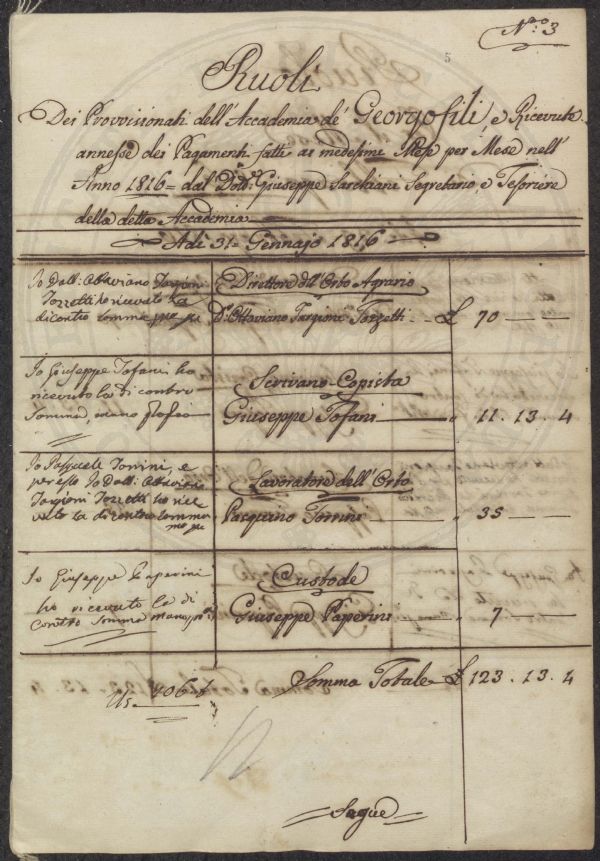 N.ro 3
5
Ruoli
Dei Provvisionati dell'Accademia de' Georgofili e Ricevute
annesse dei Pagamenti fatti ai medesimi Mese per Mese nell'
Anno 1816 = dal Dott. Giuseppe Sarchiani Segretario, e Tesoriere
della detta Accademia
Adì 31 Gennajo 1816
Io Dott: Ottaviano Targioni
Tozzetti ho ricevuto la
di contro somma
Direttore dell'Orto Agrario
D. Ottaviano Targioni Tozzetti £ 70
Io Giuseppe Tofani ho
ricevuto la di contro
Somma, mano
Scrivano-Copista
Giuseppe Tofani " 11. 13. 4
Io Pasquale Tonini, e
per esso Io Dott: Ottaviano
Targioni Tozzetti ho rice
vuto la di contro somma
Lavoratore dell'Orto
Pasquino Tonini " 35
Io Giuseppe Paperini
ho ricevuto la di
contro Somma mano
Custode
Giuseppe Paperini " 7
Somma Totale £ 123. 13. 4
Segue